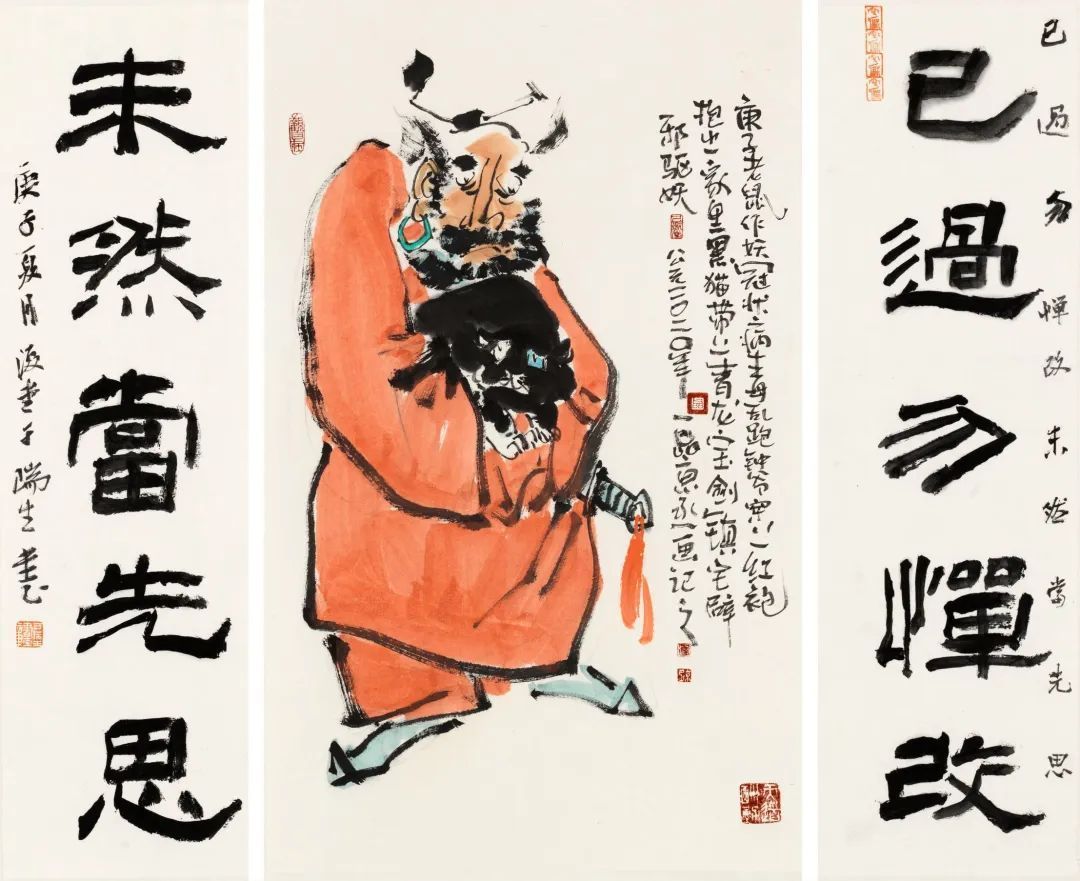 已過勿憚改未然當先思
已過勿憚改
庚子老鼠作妖冠状病毒乱跑钟爷穿上红袍
抱出家里黑猫带上青龙宝剑镇宅辟
邪驱妖 公元二〇二〇年 画记之
未然當先思
庚子夏月 瑞生書